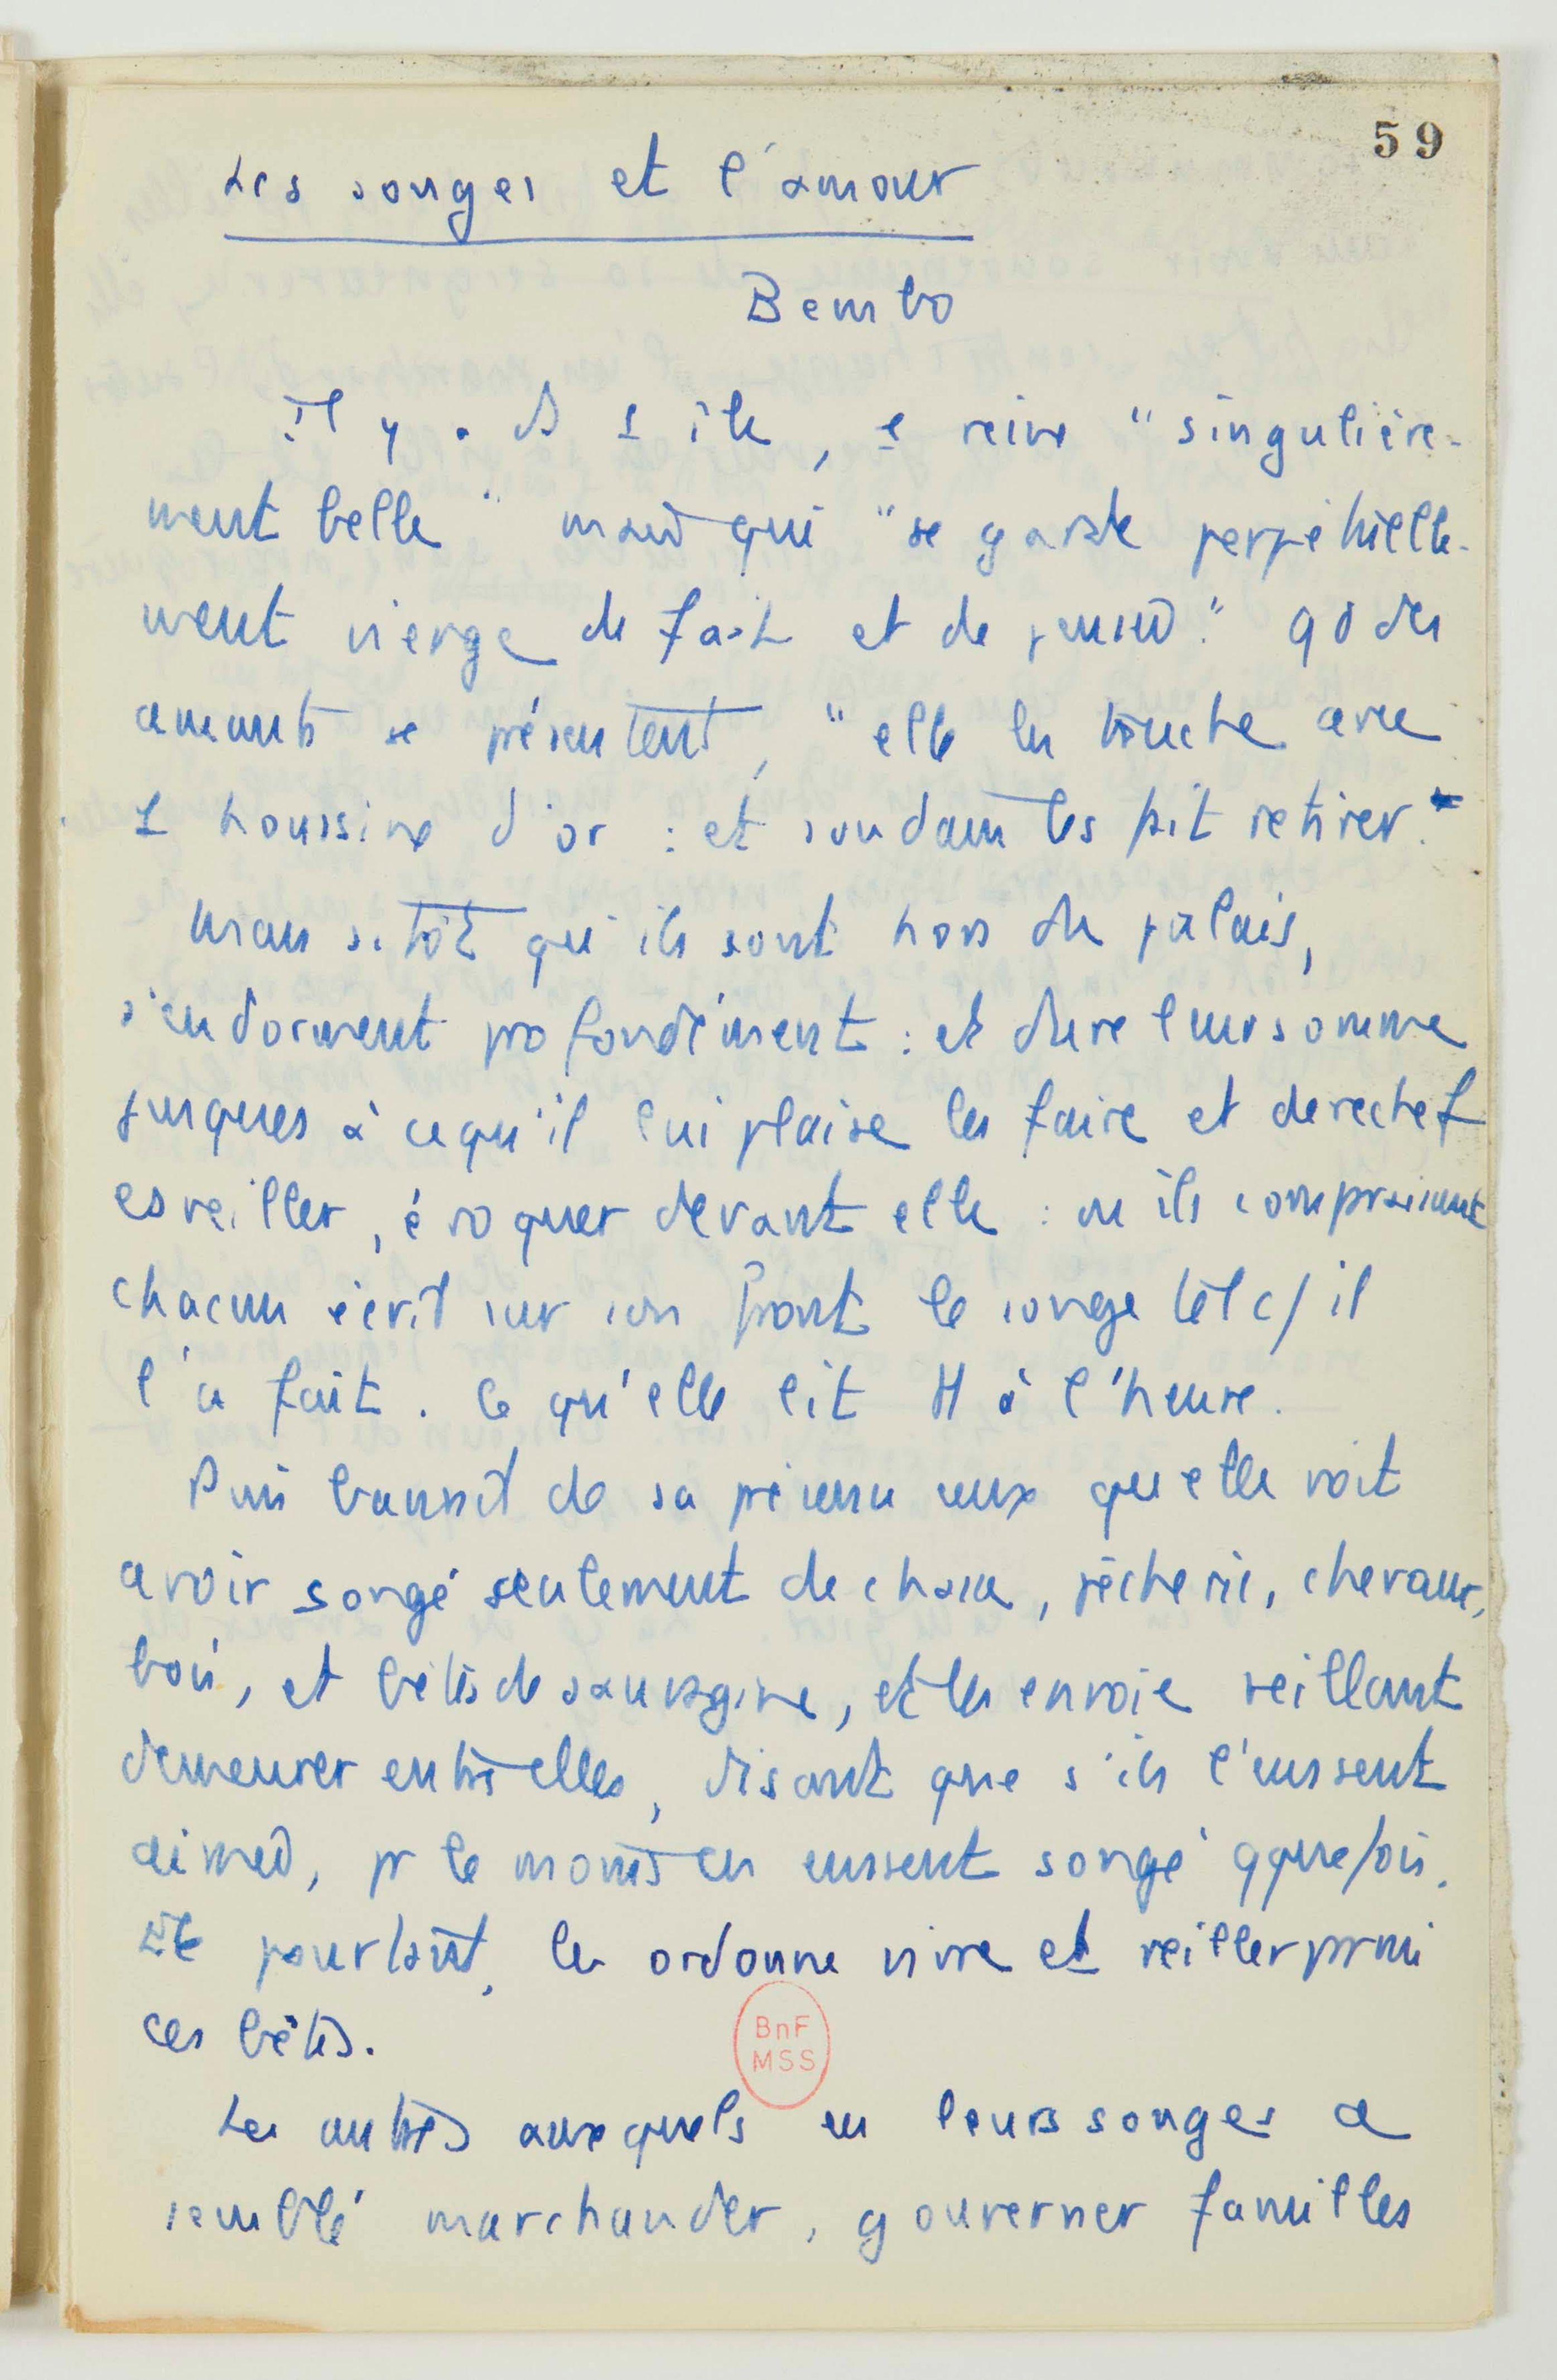 59
Les songes et l'amour
Bembo
Il y a ds 1 île, 1e reine "singulière-
ment belle" mais qui "se garde perpétuelle-
ment vierge de fait et de pensée." qd des
amants se présentent, "elle les touche avec
1 houssine d'or : et soudain les fait retirer."
Mais sitôt qu'ils sont hors du palais,
s'endorment profondément : et dure leur somme
jusques à ce qu'il lui plaise les faire et derechef
esveiller, évoquer devant elle : où ils comparaissent
chacun écrit sur son front le songe tel c/ il
l'a fait. Ce qu'elle lit tt à l'heure.
Puis bannit de sa présence ceux que elle voit
avoir songé seulement de chasse, pêcherie, chevaux,
bois, et bêtes de sauvagine, et les envoie veillant
demeurer entre elles, disant que s'ils l'eussent
aimée, pr le moins en eussent songé qquefois.
Et pourtant, les ordonne vivre et veiller parmi
ces bêtes.
BnF
MSS
Les autres auxquels en leurs songes a
semblé marchander, gouverner familles